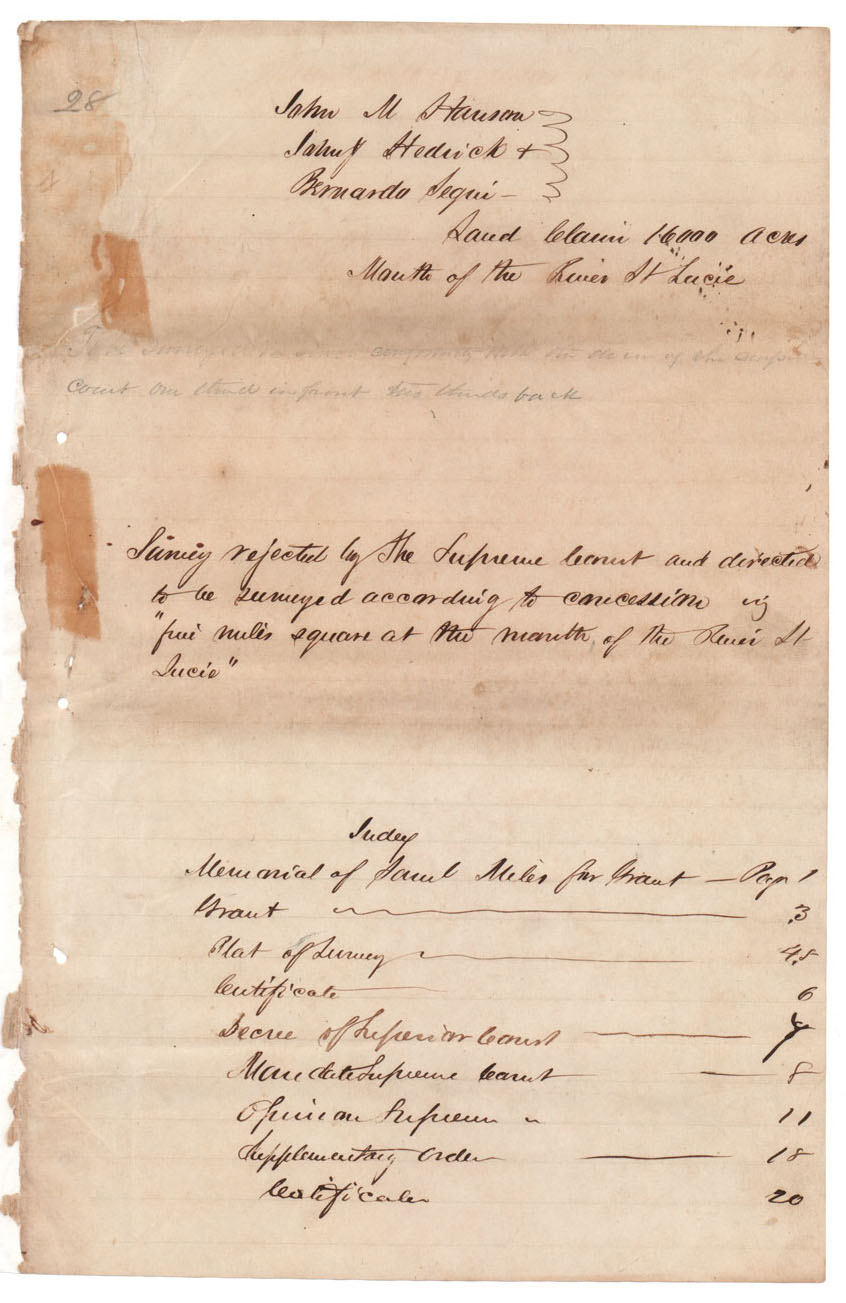 28
John M Hanson
John J Hedrick &
Bernardo Segui —
Land Claim 16000 Acres
Mouth of the River St Lucie
surveyed in conformity with the decree of the
court one third in front two thirds back
Survey rejected by the Supreme Court and directed
to be surveyed according to concession viz
"five miles square at the mouth of the River St
Lucie"
Index
Memorial of Saml Miles for Grant — Page 1
Grant — 3
Plat of Survey — 4.5
Certificate — 6
Decree of Superior Court — 7
Mandate Supreme Court — 8
Opinion Supreme " 11
Supplementary Order — 18
Certificates 20